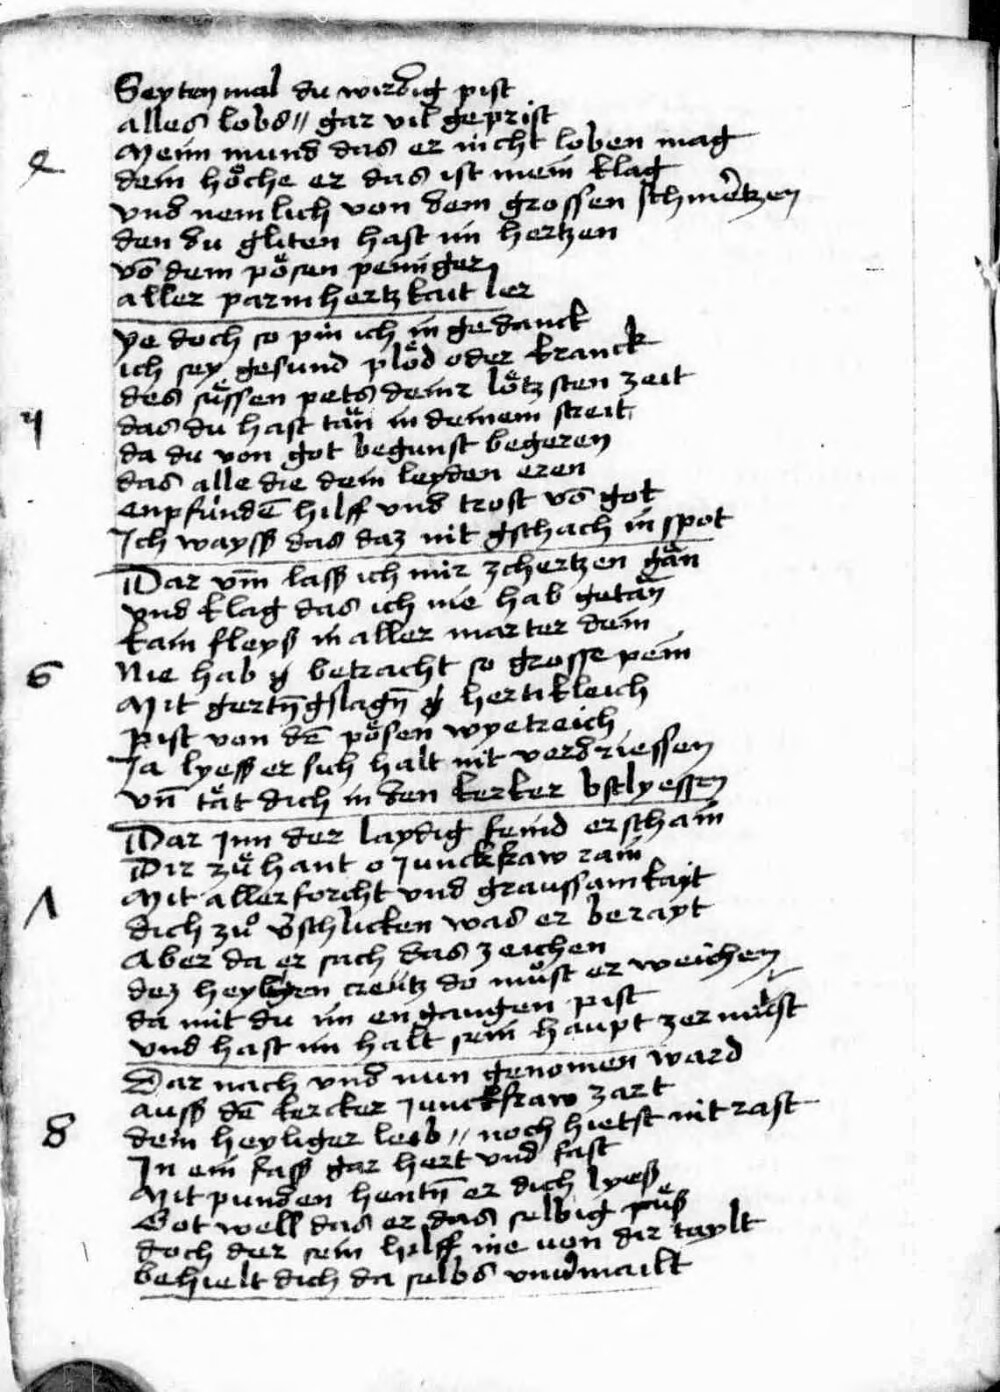 Seyten mal du wirdig pist
alles lobs // gar vil geprist
Mein mund das er nicht loben mag
4
dein höche er das ist mein klag
vnd nemlich von dem grossen schmertzen
den du gliten hast im hertzen
vō dem pösen peiniger
aller parmhertzkait ler
ye doch so pin ich in gedanck
ich sey gesund plöd oder kranck
des süssen pets deinr lötzsten zeit
das du hast tän in deinem streit
5
da du von got begunst begeren
das alle die dein leyden eren
enpfundē hilff vnd trost vō got
Ich wayss das daz nit gschach in spot
Dar vm̄ lass ich mir zhertzen gän
vnd klag das ich nie hab getän
kain fleyss in aller marter dein
6
Nie hab betracht so grosse pein
Mit gertn̄ gslagn̄ hertikleich
pist von dē pösen wyetreich
Ja lyess er sich halt nit verdriessen
vn̄ tät dich in den kerker bslyessen
Dar Inn der laydig feind erschain
Dir zü hant o Junckfraw rain
Mit aller forcht vnd graussamkayt
7
dich zů vschlicken was er berayt
Aber da er sach das zeichen
dez heyligen creütz do můst er weichen
da mit du im engangen pist
vnd hast im halt sein haupt zermüst
Dar nach vnd nun genomen ward
auss dē kercker Junckfraw zart
8
dein heyliger leib // noch hietst nit rast
In ein fass gar hert vnd fast
Mit punden hentn̄ er dich lyess
Got well das er das selbig püss
doch der sein hilff nie von dir taylt
behielt dich da selbs vnuermailt